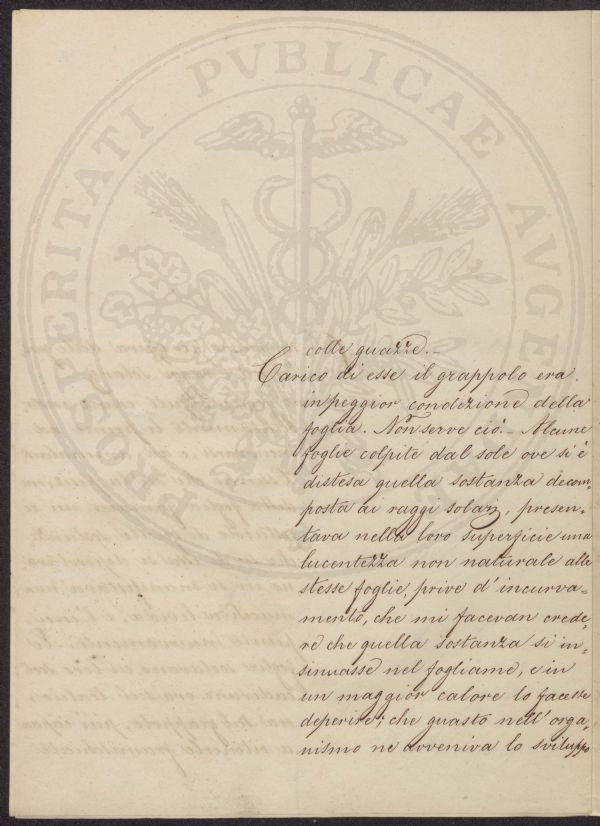 PROSPERITATI PVBLICAE AVGENDAE
colle guazze. –
Carico di esse il grappolo era
in peggior condizione della
foglia. Non serve ciò. – Alcune
foglie colpite dal sole ove si è
distesa quella sostanza decom=
posta ai raggi solari, presen=
tava nella loro superficie una
lucentezza non naturale alle
stesse foglie, prive d'incurva=
mento, che mi facevan crede=
re che quella sostanza si in=
sinuasse nel fogliame, e in
un maggior calore lo facesse
deperire; che guasto nell'orga=
nismo ne avveniva lo sviluppo